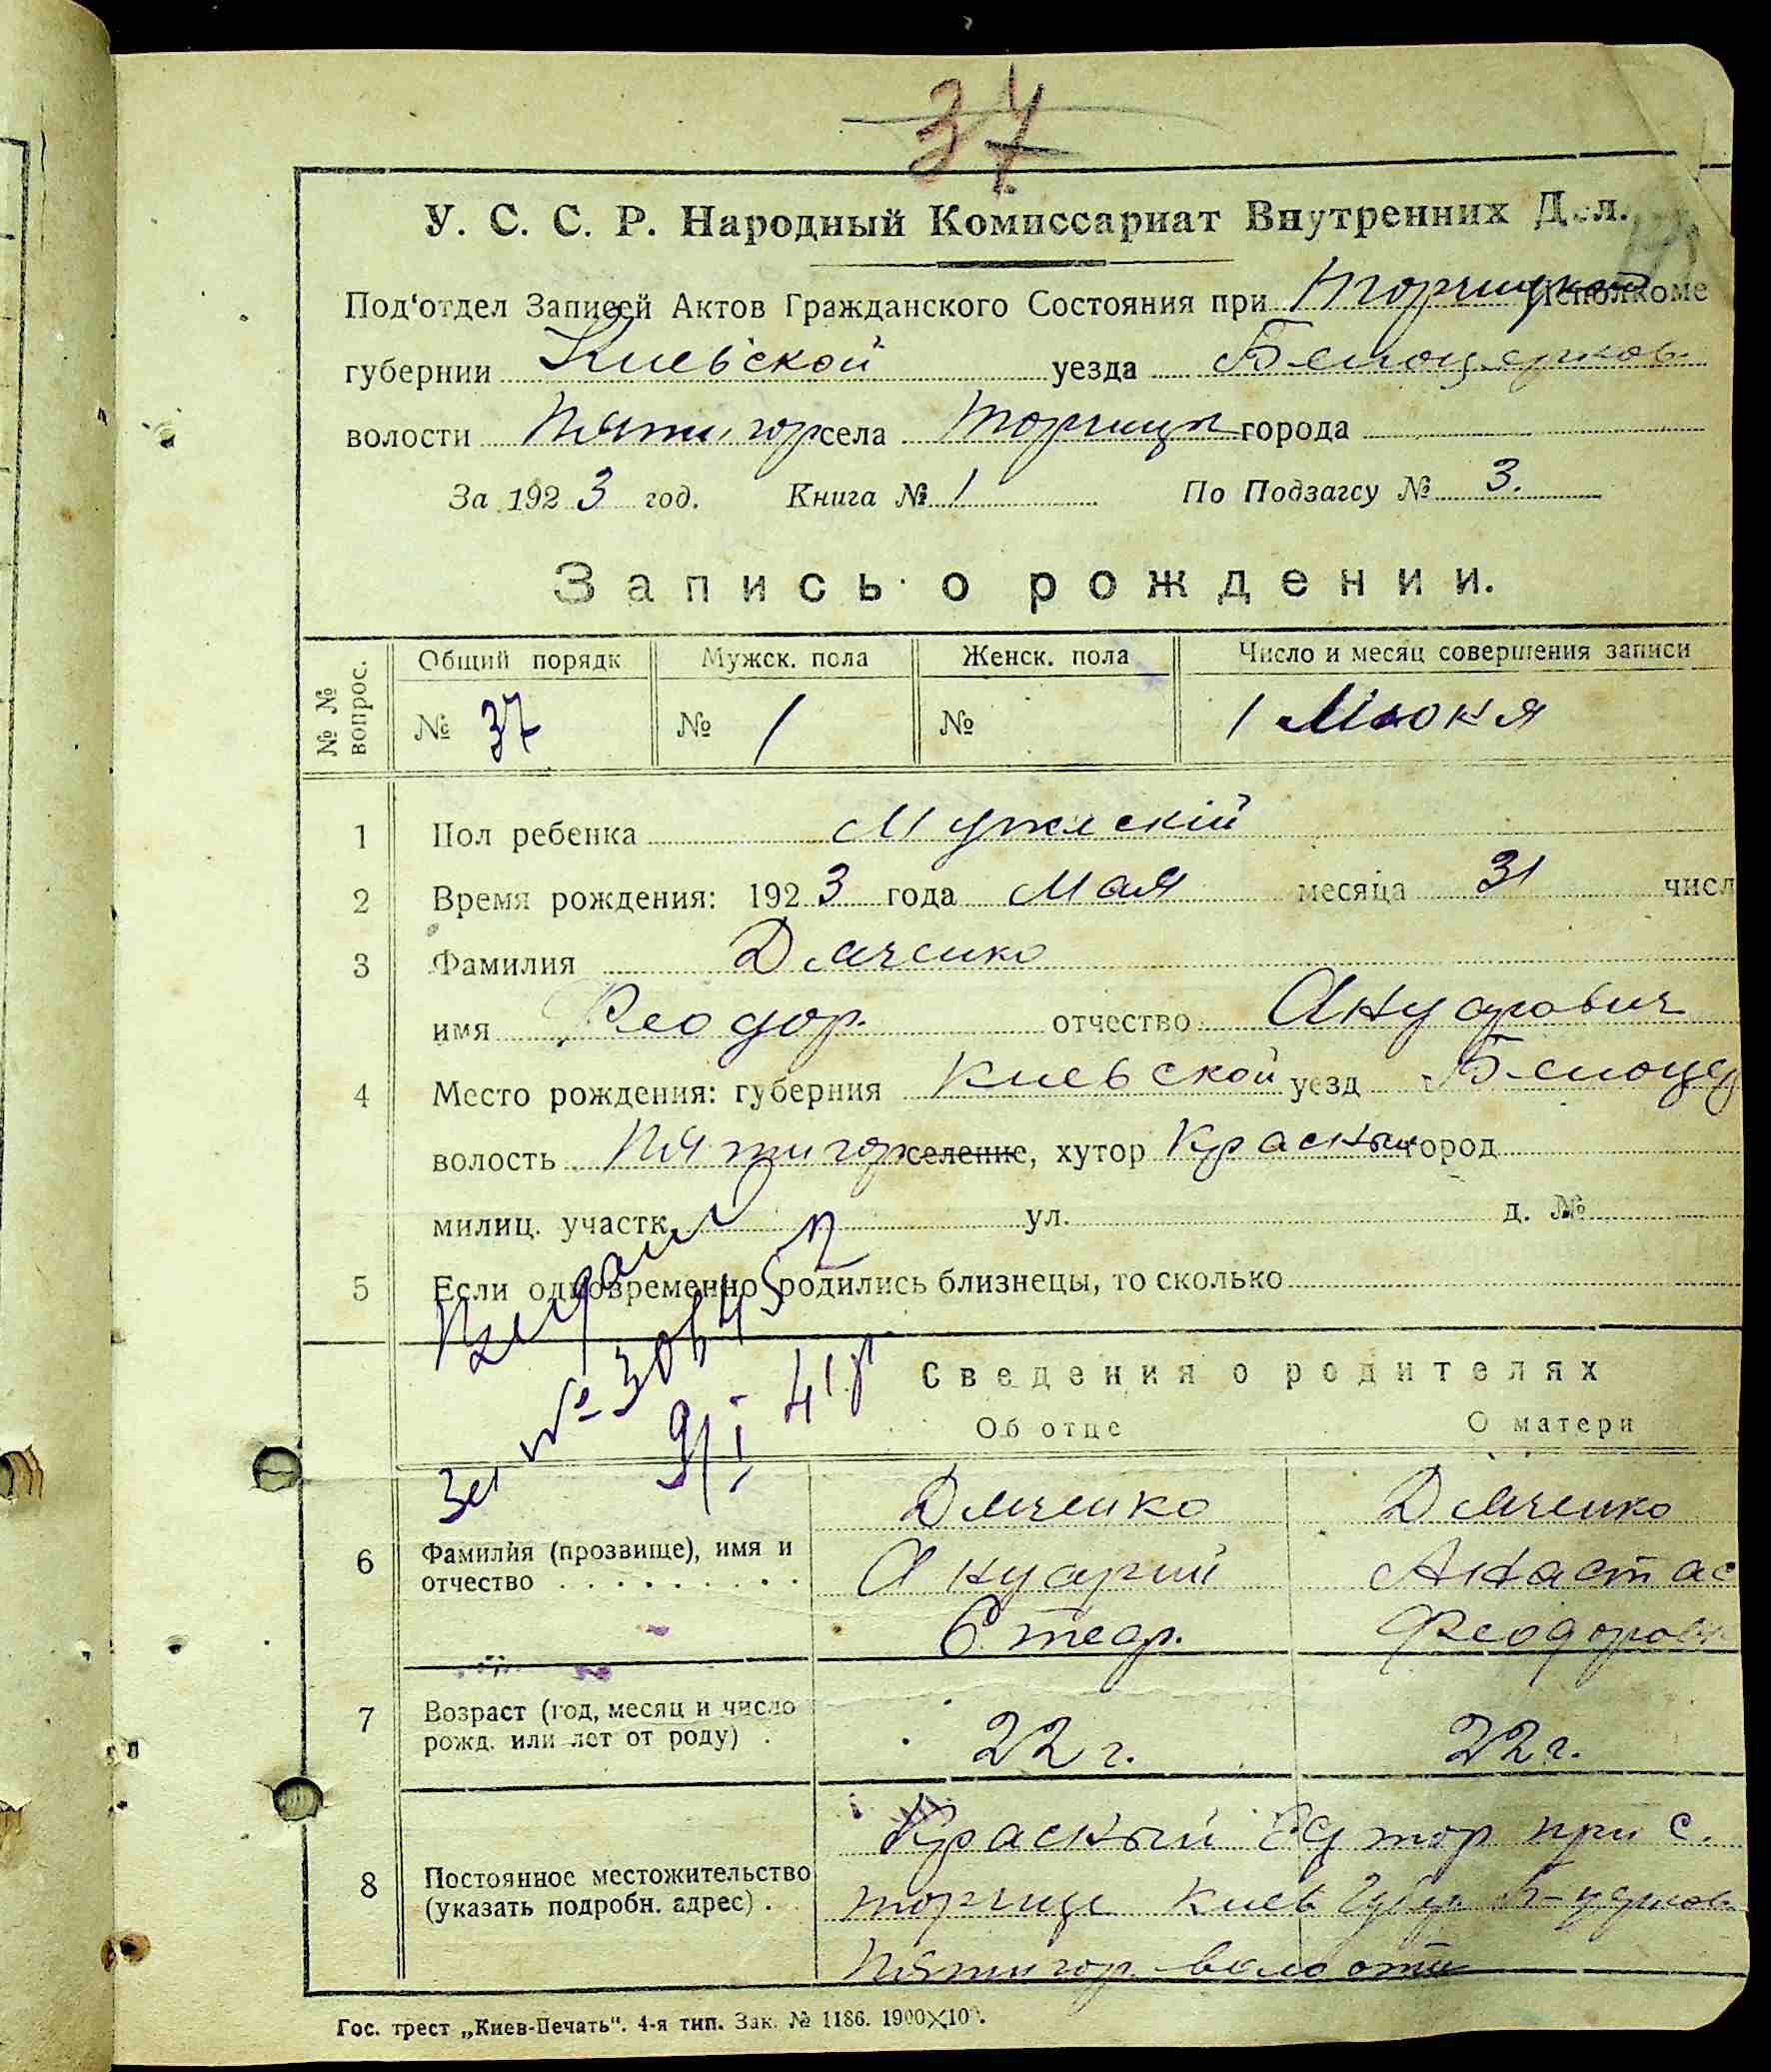 37
У. С. С. Р. Народный Комиссариат Внутренних Дел.
Под'отдел Записей Актов Гражданского Состояния при Торчицком Исполкоме
губернии Киевской уезда Белоцерков.
волости Пятигор села Торчицы города
За 1923 год. Книга № 1 По Подзагсу № 3.
Запись о рождении.
№ № вопрос. Общий порядк Мужск. пола Женск. пола Число и месяц совершения записи
№ 37 № 1 № 1 Июня
1 Пол ребенка Мужскій
2 Время рождения: 1923 года Мая месяца 31 числ
3 Фамилия Дяченко
имя Феодор. отчество Ануарович
4 Место рождения: губерния Киевской уезд Белоцер
волость Пятигор селение, хутор Красный город
милиц. участк. ул. д. №
5 Если одновременно родились близнецы, то сколько
Сведения о родителях
Об отце О матери
За № 9/I 41р
6 Фамилия (прозвище), имя и отчество
Дяченко Дяченко
Ануарий Анастас
Степ. Феодоровн
7 Возраст (год, месяц и число рожд. или лет от роду)
22 г. 22 г.
8 Постоянное местожительство (указать подробн. адрес)
Красный Хутор при с.
Торчице Киев Губер Б-церков
Пятигор. волости
Гос. трест „Киев-Печать". 4-я тип. Зак. № 1186. 1900×10